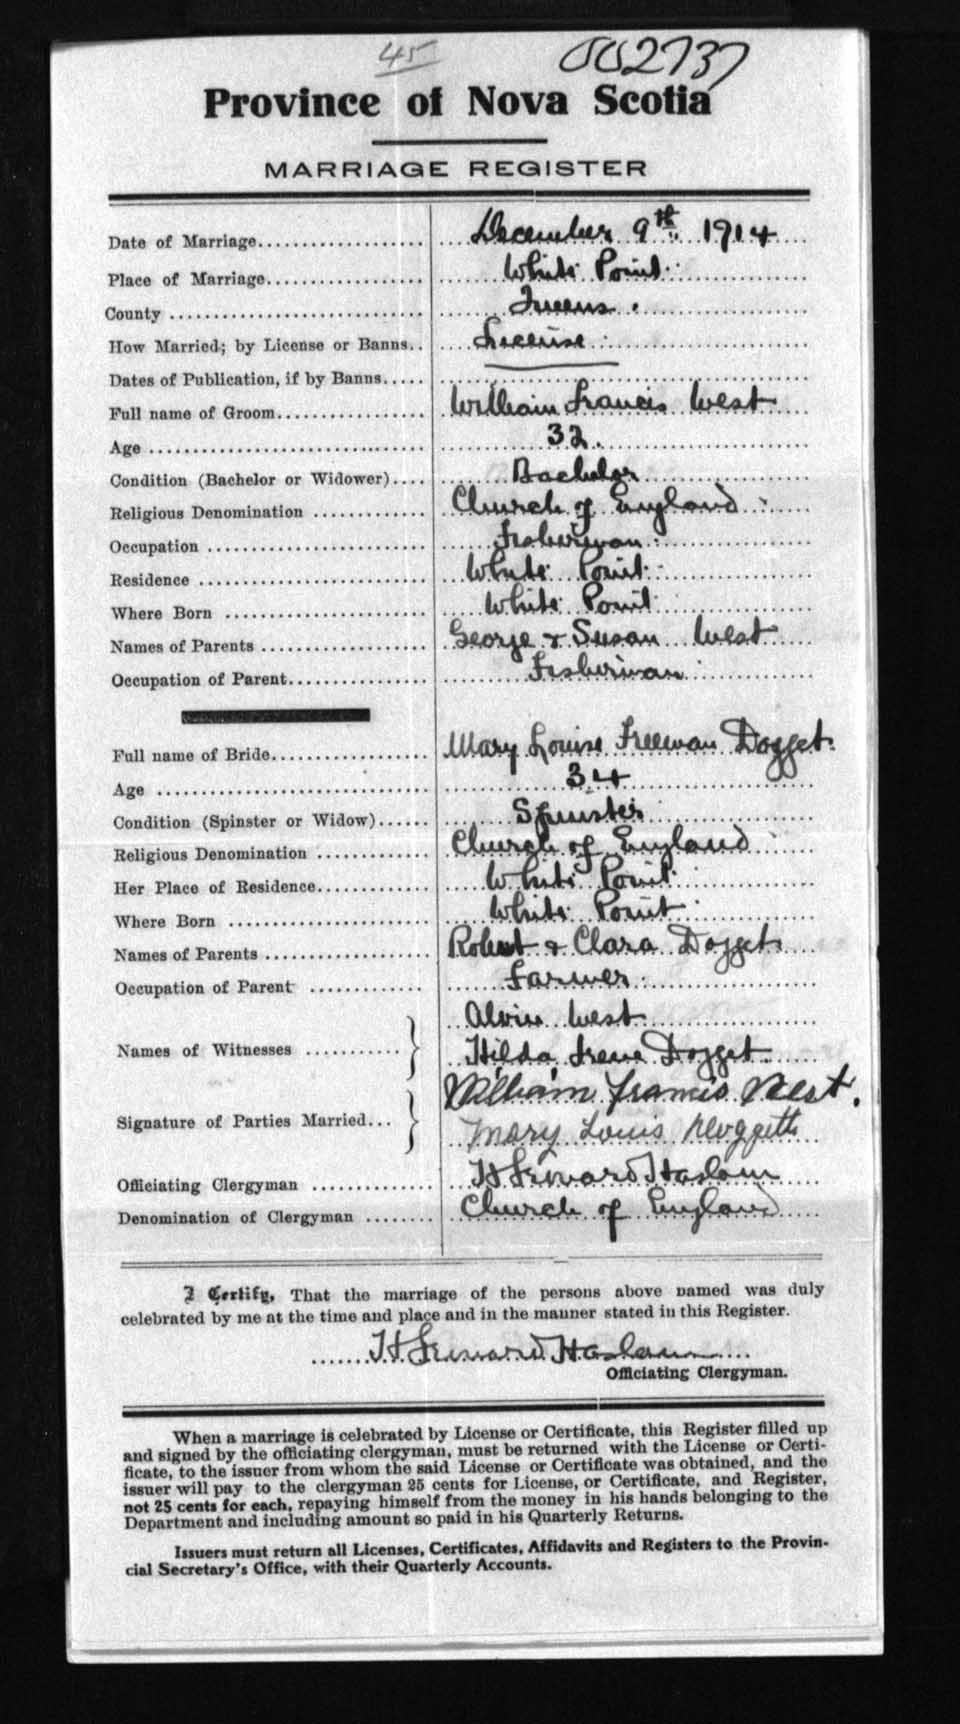 45
002737
Province of Nova Scotia
MARRIAGE REGISTER
Date of Marriage.................. December 9th. 1914
Place of Marriage.................. White Point
County .................. Queens.
How Married; by License or Banns.. License
Dates of Publication, if by Banns.....
Full name of Groom.................. William Francis West
Age .................. 32.
Condition (Bachelor or Widower).... Bachelor
Religious Denomination ............. Church of England
Occupation .................. Fisherman
Residence .................. White Point
Where Born .................. White Point
Names of Parents .................. George & Susan West
Occupation of Parent.................. Fisherman
Full name of Bride.................. Mary Louise Freeman Dogget
Age .................. 34
Condition (Spinster or Widow)...... Spinster
Religious Denomination ............ Church of England
Her Place of Residence............. White Point
Where Born .................. White Point
Names of Parents .................. Robert & Clara Dogget
Occupation of Parent ............. Farmer
Alvin West
Names of Witnesses ........... Hilda Irene Dogget
William Francis West.
Signature of Parties Married... Mary Louis Doggett
Officiating Clergyman ............. H Haslam
Denomination of Clergyman ........ Church of England
I Certify, That the marriage of the persons above named was duly
celebrated by me at the time and place and in the manner stated in this Register.
H Haslam
Officiating Clergyman.
When a marriage is celebrated by License or Certificate, this Register filled up
and signed by the officiating clergyman, must be returned with the License or Certi-
ficate, to the issuer from whom the said License or Certificate was obtained, and the
issuer will pay to the clergyman 25 cents for License, or Certificate, and Register,
not 25 cents for each, repaying himself from the money in his hands belonging to the
Department and including amount so paid in his Quarterly Returns.
Issuers must return all Licenses, Certificates, Affidavits and Registers to the Provin-
cial Secretary's Office, with their Quarterly Accounts.